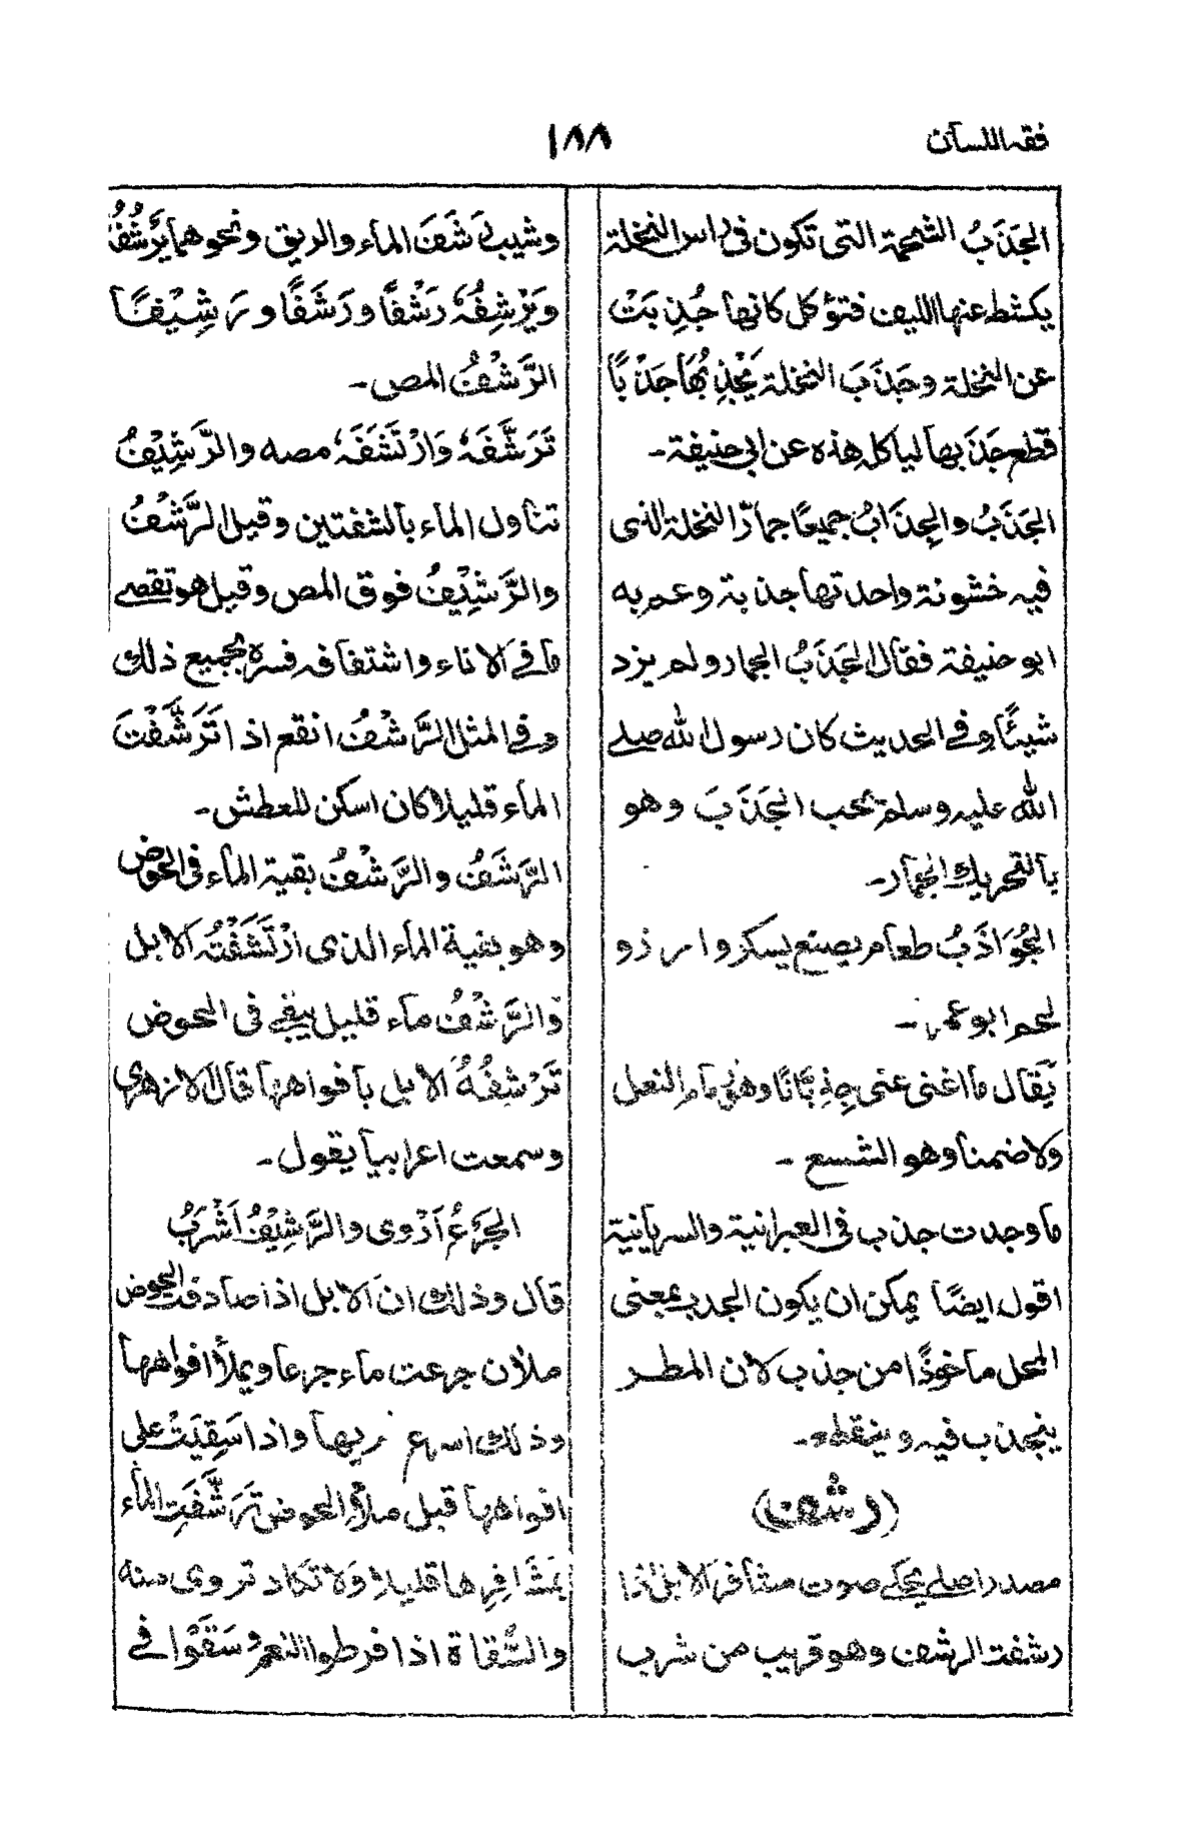 فقہ اللسان
١٨٨
الجَذَبُ الشحمة التی تکون فی راس النخلة
یکشط عنها اللیف فتؤکل کانها جُذِبَتْ
عن النخلة وجَذَبَ النخلة یَجْذِبُهَا جَذْبًا
قطع جَذَبها لیاکله هذه عن ابی حنیفة۔
الجَذَبُ والجِذَابُ جمیعًا جمار النخلة الذی
فیه خشونة واحدتها جذبة وعم به
ابو حنیفة فقال الجَذَبُ الجمار ولم یزد
شیئًا وفی الحدیث کان رسول الله صلے
الله علیه وسلم یحب الجَذَبَ وهو
بالتحریك الجمار۔
الجُوَاذَبُ طعام یصنع بسکر وارزو
لحم ابو عمر۔
یقال ما اغنی عنی جِذِبَّانًا وهو زمام النعل
ولا ضمنا وهو الشسع۔
ما وجدت جذب فی العبرانیة والسریانیة
اقول ایضًا یمکن ان یکون الجدب بمعنی
المحل ماخوذًا من جذب لان المطر
ینجذب فیه وینقطع۔
(رشف)
مصدر اصلی یحکے صوت مشافر الابل اذا
رشفت الرشف وهو قریب من شرب
وشیب رَشَفَ الماء والریق ونحوهما یَرْشُفُ
ویَرْشِفُهٗ رَشْفًا ورَشَفًا ورَشِیْفًا
الرَّشْفُ المص۔
تَرَشَّفَهٗ وَارْتَشَفَهٗ مصه والرَّشِیْفُ
تناول الماء بالشفتین وقیل الرَّشْفُ
والرَّشِیْفُ فوق المص وقیل هو تقصی
ما فی الاناء واشتفافه فسره بجمیع ذلك
وفی المثل الرَّشْفُ انقع اذا تَرَشَّفْتَ
الماء قلیلا کان اسکن للعطش۔
الرَّشَفُ والرَّشْفُ بقیة الماء فی الحوض
وهو بقیة الماء الذی ارْتَشَفَتْهُ الابل
والرَّشْفُ ماء قلیل یبقی فی الحوض
تَرْشِفُهُ الابل بافواهها قال الازهری
وسمعت اعرابیا یقول۔
الجَرْعُ اَرْوی والرَّشِیْفُ اَشْرَبُ
قال وذلك ان الابل اذا صادفت الحوض
ملاٰن جرعت ماءہ جرعا ویملأ افواهها
وذلك اسرع لریها واذا سُقِیَتْ علی
افواهها قبل ملأ الحوض تَرَشَّفَتِ الماء
بِمَشَافِرِها قلیلا ولا تکاد تروی منه
والسُّقاة اذا فرطوا النعم وسَقَوْا فی